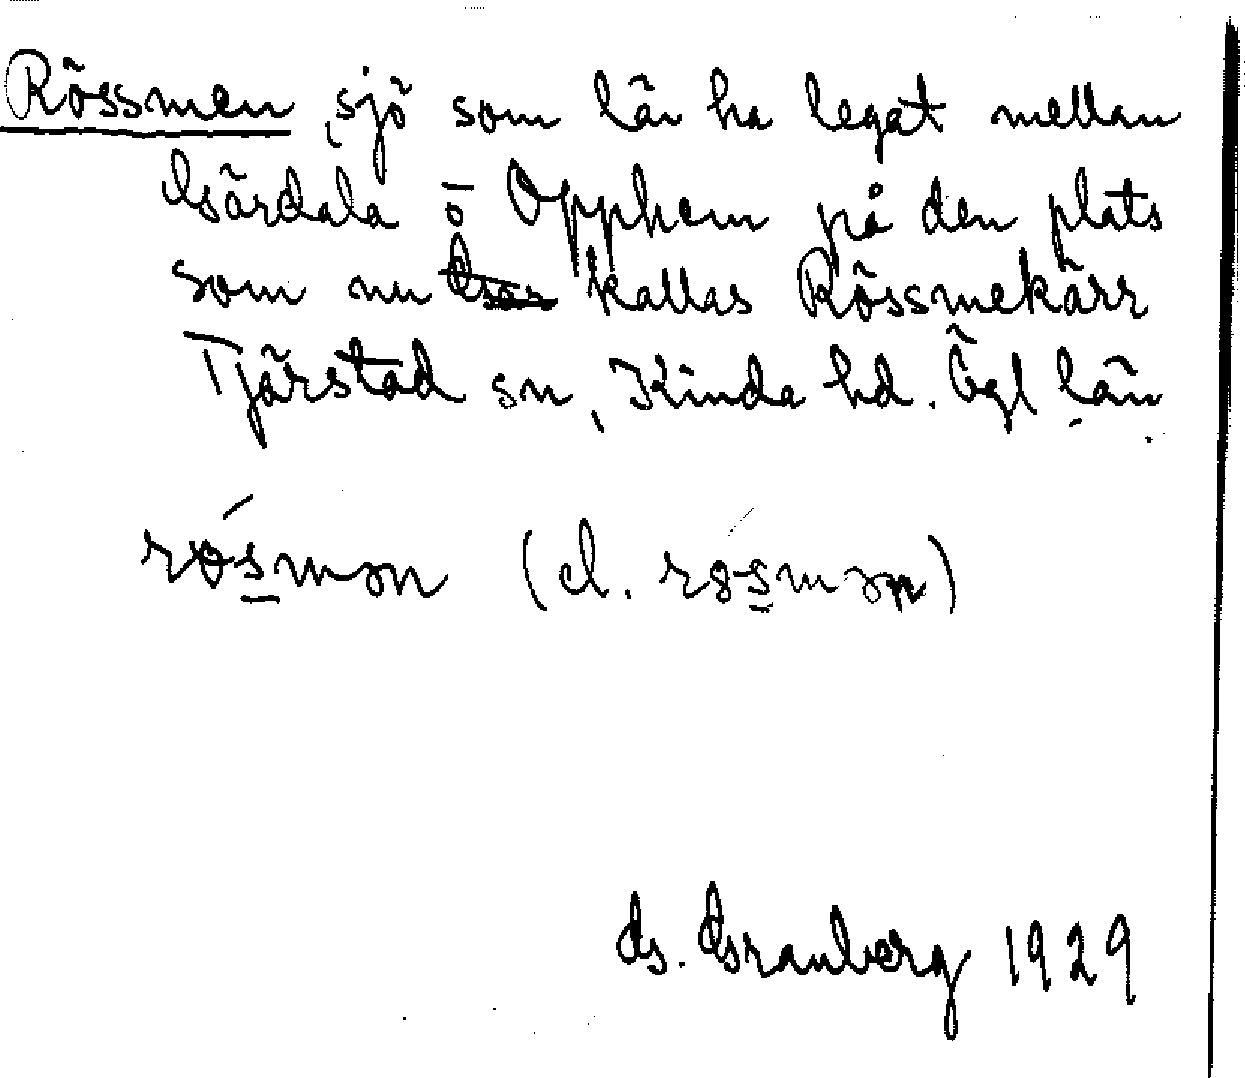 Rössmen, sjö som lär ha legat mellan
Gärdala o Opphem på den plats
som nu kallas Rössmekärr
Tjärstad sn, Kinda hd. Ögl län
(el.
G. Granberg 1929